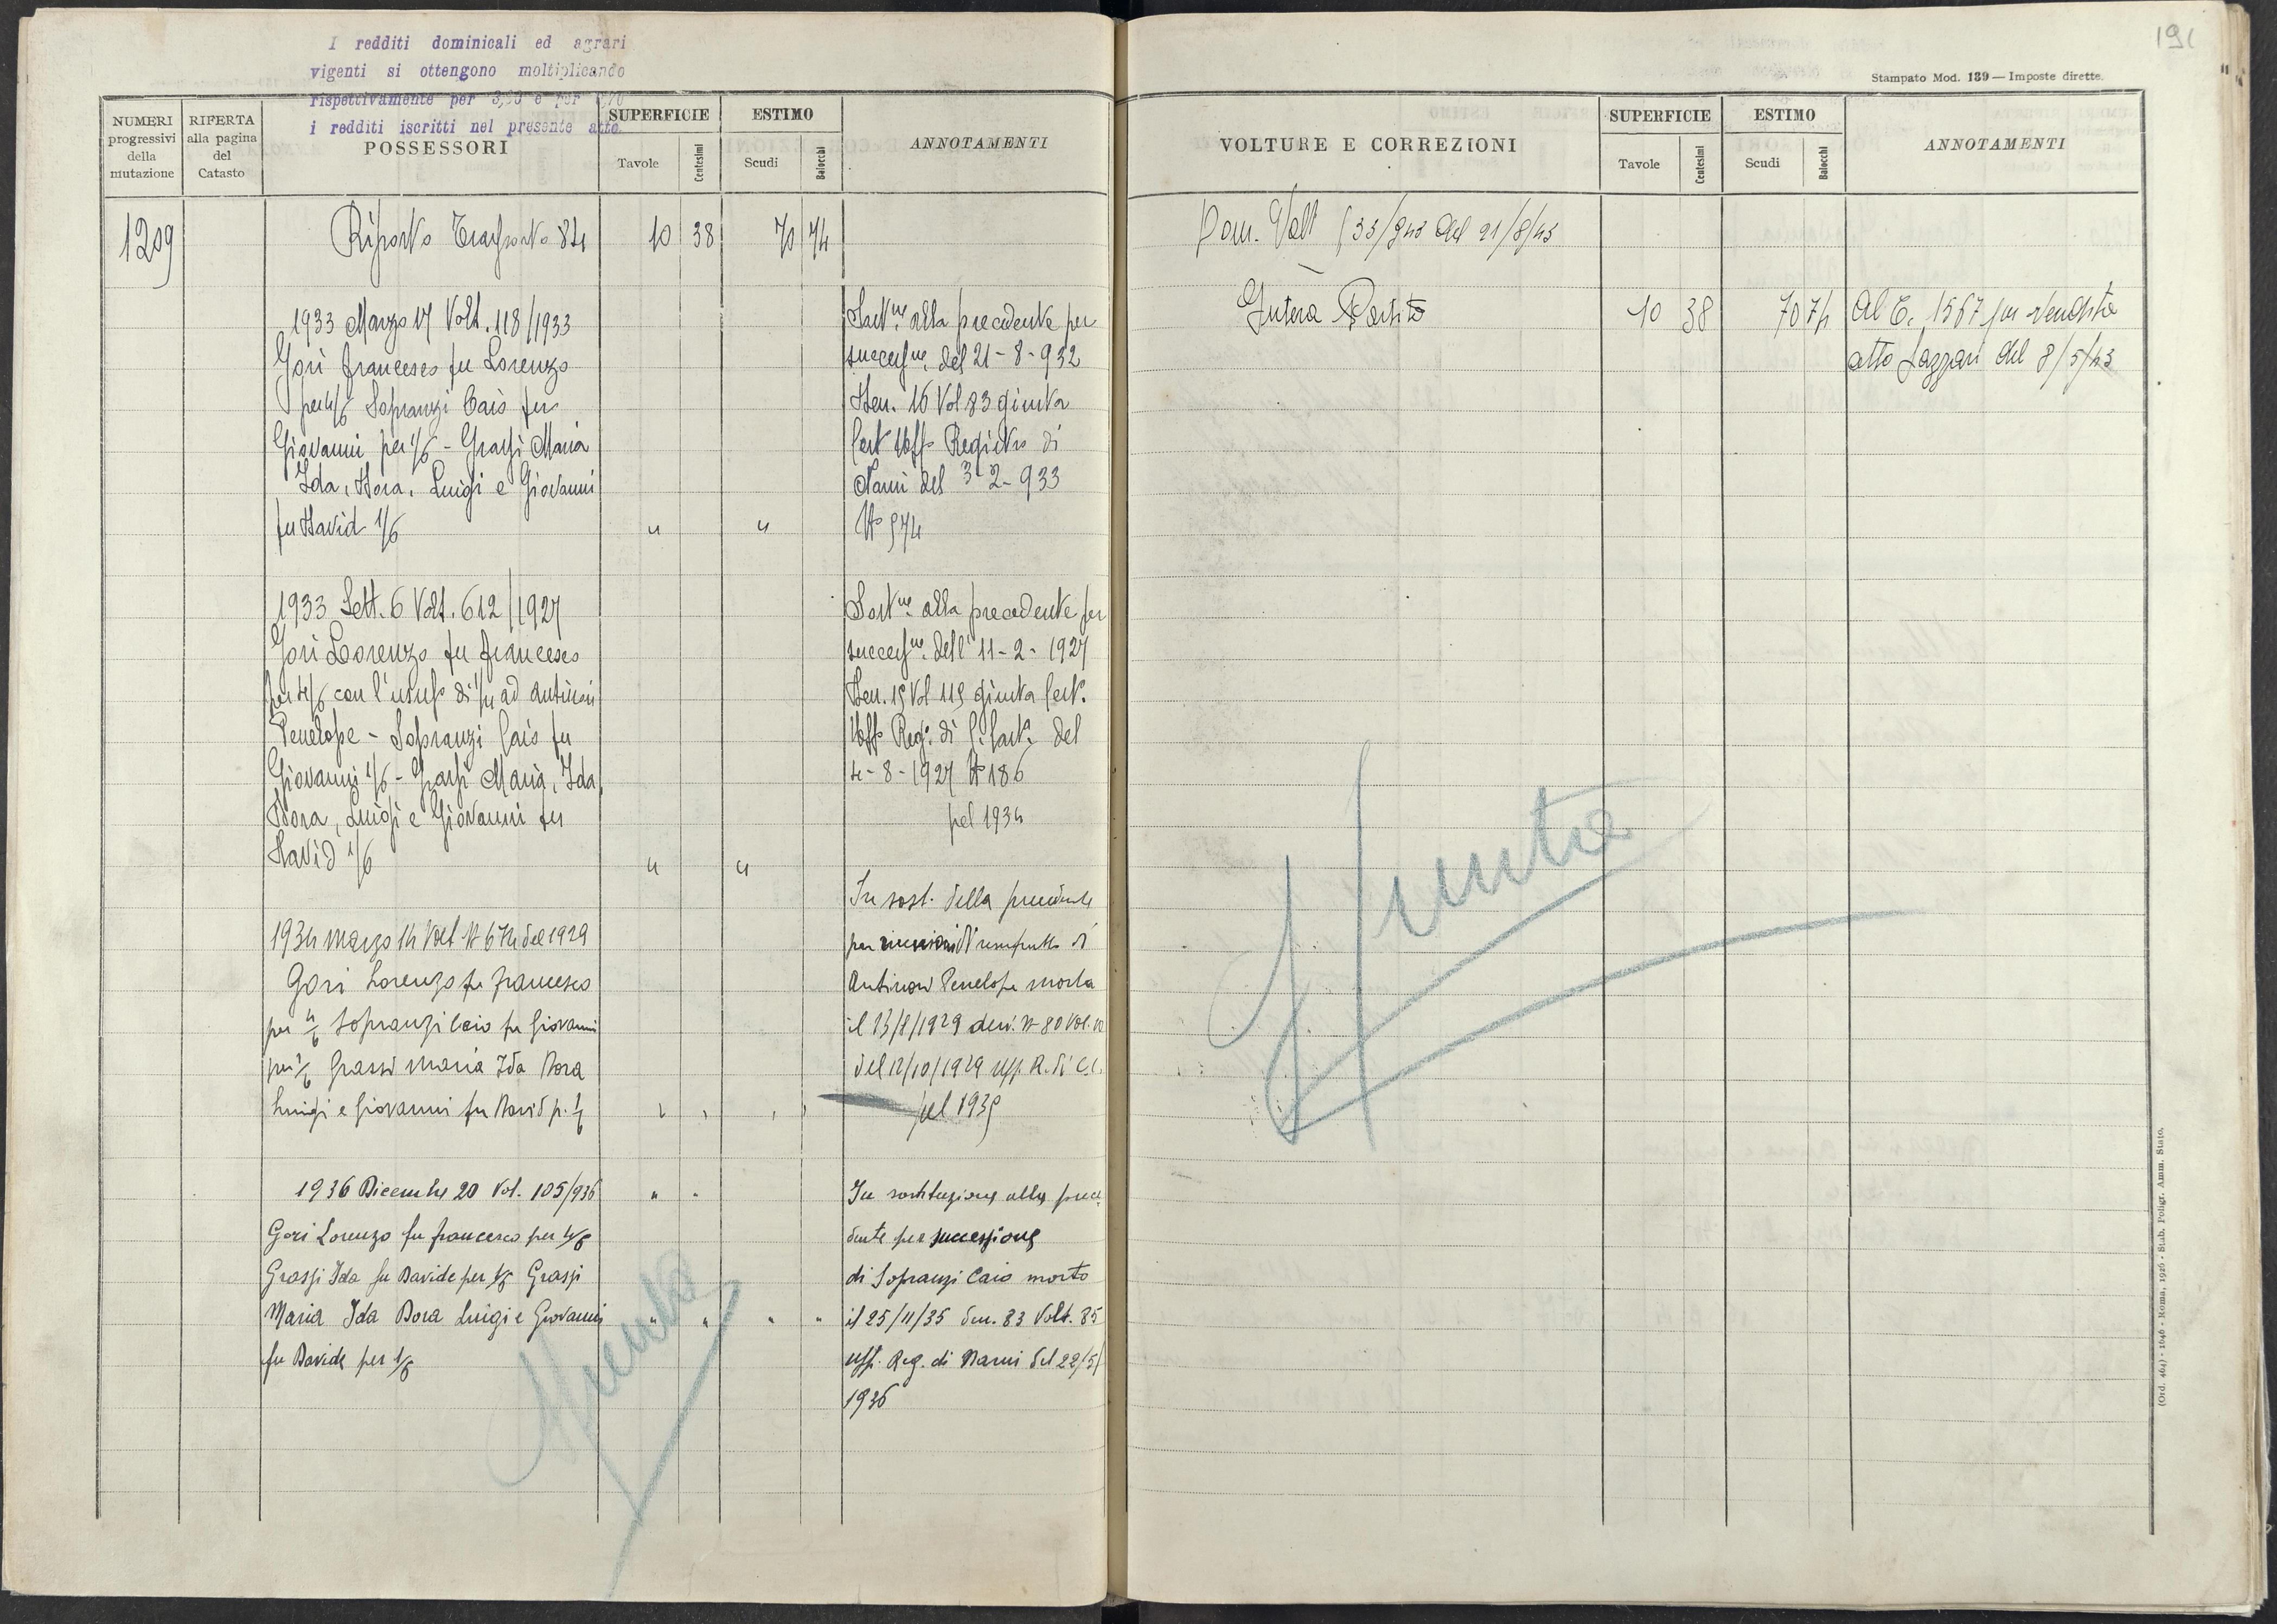 I redditi dominicali ed agrari
vigenti si ottengono moltiplicando
rispettivamente per
i redditi iscritti nel presente atto.
NUMERI progressivi della mutazione
RIFERTA alla pagina del Catasto
POSSESSORI
SUPERFICIE
Tavole
Centesimi
ESTIMO
Scudi
Baiocchi
ANNOTAMENTI
1209
Riporto Trasporto 84
10 38 70 74
1933 Marzo 17 Volt. 118/1933
Gori Francesco fu Lorenzo
per 4/6 Sopranzi Caio fu
Giovanni per 1/6 - Grassi Maria
Ida, Dora, Luigi e Giovanni
fu David 1/6 " "
Sost.ne alla precedente per
success.ne del 21-8-932
Den. 16 Vol 83 giusta
Cert Uff. Registro di
Narni del 3-2-933
N° 574
1933 Sett. 6 Volt. 612/1927
Gori Lorenzo fu Francesco
per 4/6 con l'usuf. di ad Antinori
Penelope - Sopranzi Caio fu
Giovanni 1/6 - Grassi Maria, Ida,
Dora, Luigi e Giovanni fu
David 1/6 " "
Sost.ne alla precedente per
success.ne dell' 11-2-1927
Den. 15 Vol 115 giusta Cert.
Uff. Reg. di C. Cast. del
4-8-1927 N° 186
pel 1934
1934 marzo 14 Volt N° 674 del 1929
Gori Lorenzo fu Francesco
per 4/6 Sopranzi Caio fu Giovanni
per 1/6 Grassi Maria Ida Dora
Luigi e Giovanni fu David p. 1/6
In sost. della precedente
per riunione d'usufrutto di
Antinori Penelope morta
il 13/8/1929 den. N° 80 Vol.
del 12/10/1929 Uff. R. di C.C.
pel 1935
1936 Dicembre 20 Vol. 105/936 " "
Gori Lorenzo fu Francesco per 4/6
Grassi Ida fu Davide per 1/6 Grassi
Maria Ida Dora Luigi e Giovanni " " " "
fu Davide per 1/6
In sostituzione alla prece
dente per successione
di Sopranzi Caio morto
il 25/11/35 Den. 83 Volt. 85
Uff. Reg. di Narni del 22/5/
1936
Spenta
191
Stampato Mod. 139 — Imposte dirette.
VOLTURE E CORREZIONI
SUPERFICIE
Tavole
Centesimi
ESTIMO
Scudi
Baiocchi
ANNOTAMENTI
Dom. Volt 53/943 del 21/8/43
Intera Partita
10 38 70 74
Al C. 1567 per vendita
atto Lazzari del 8/5/43
Spenta
(Ord. 464) - 1646 - Roma, 1926 - Stab. Poligr. Amm. Stato.